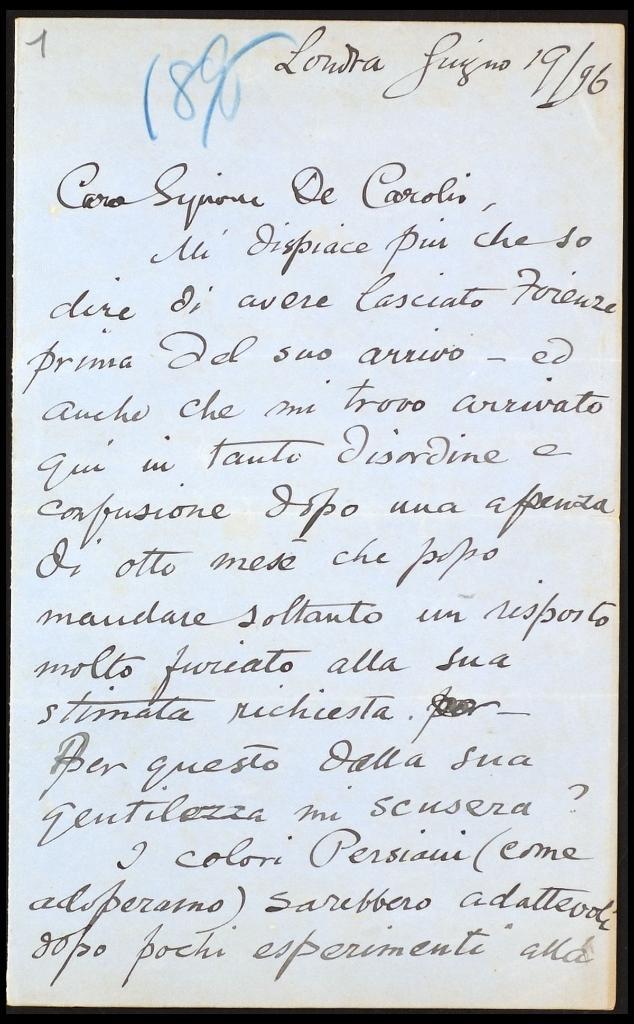 1
189
Londra Giugno 19/96
Caro Signore De Carolis,
Mi dispiace piu che so
dire di avere lasciato Firenze
prima del suo arrivo – ed
anche che mi trovo arrivato
qui in tanto disordine e
confusione dopo una assenza
di otto mese che posso
mandare soltanto un risposto
molto furiato alla sua
stimata richiesta. per –
Per questo dalla sua
gentilezza mi scusera?
I colori Persiani (come
adoperamo) sarebbero adattevoli
dopo pochi esperimenti alla